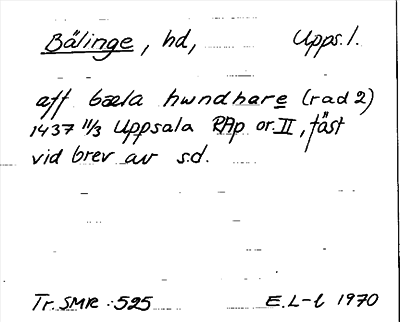 Bälinge, hd, Upps. l.
aff bæla hwndhare (rad 2)
1437 11/3 Uppsala RAp or. II, fäst
vid brev av s.d.
Tr. SMR : 525 E. L-l 1970